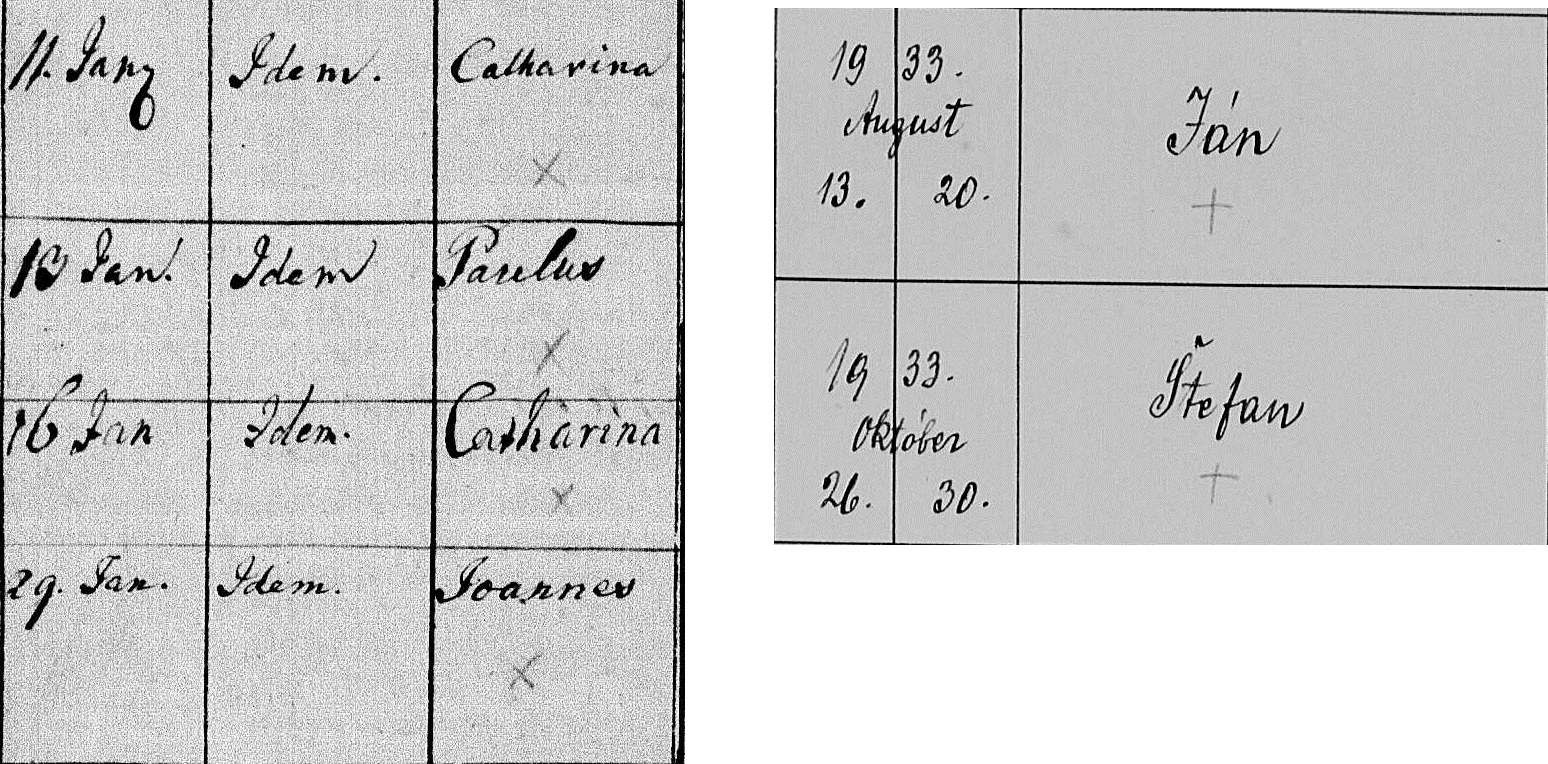 11. Jany Idem. Catharina
13 Jan. Idem Paulus
16 Jan Idem. Catharina
29. Jan. Idem. Joannes
19 33.
August
13. 20.
Ján
19 33.
Október
26. 30.
Štefan